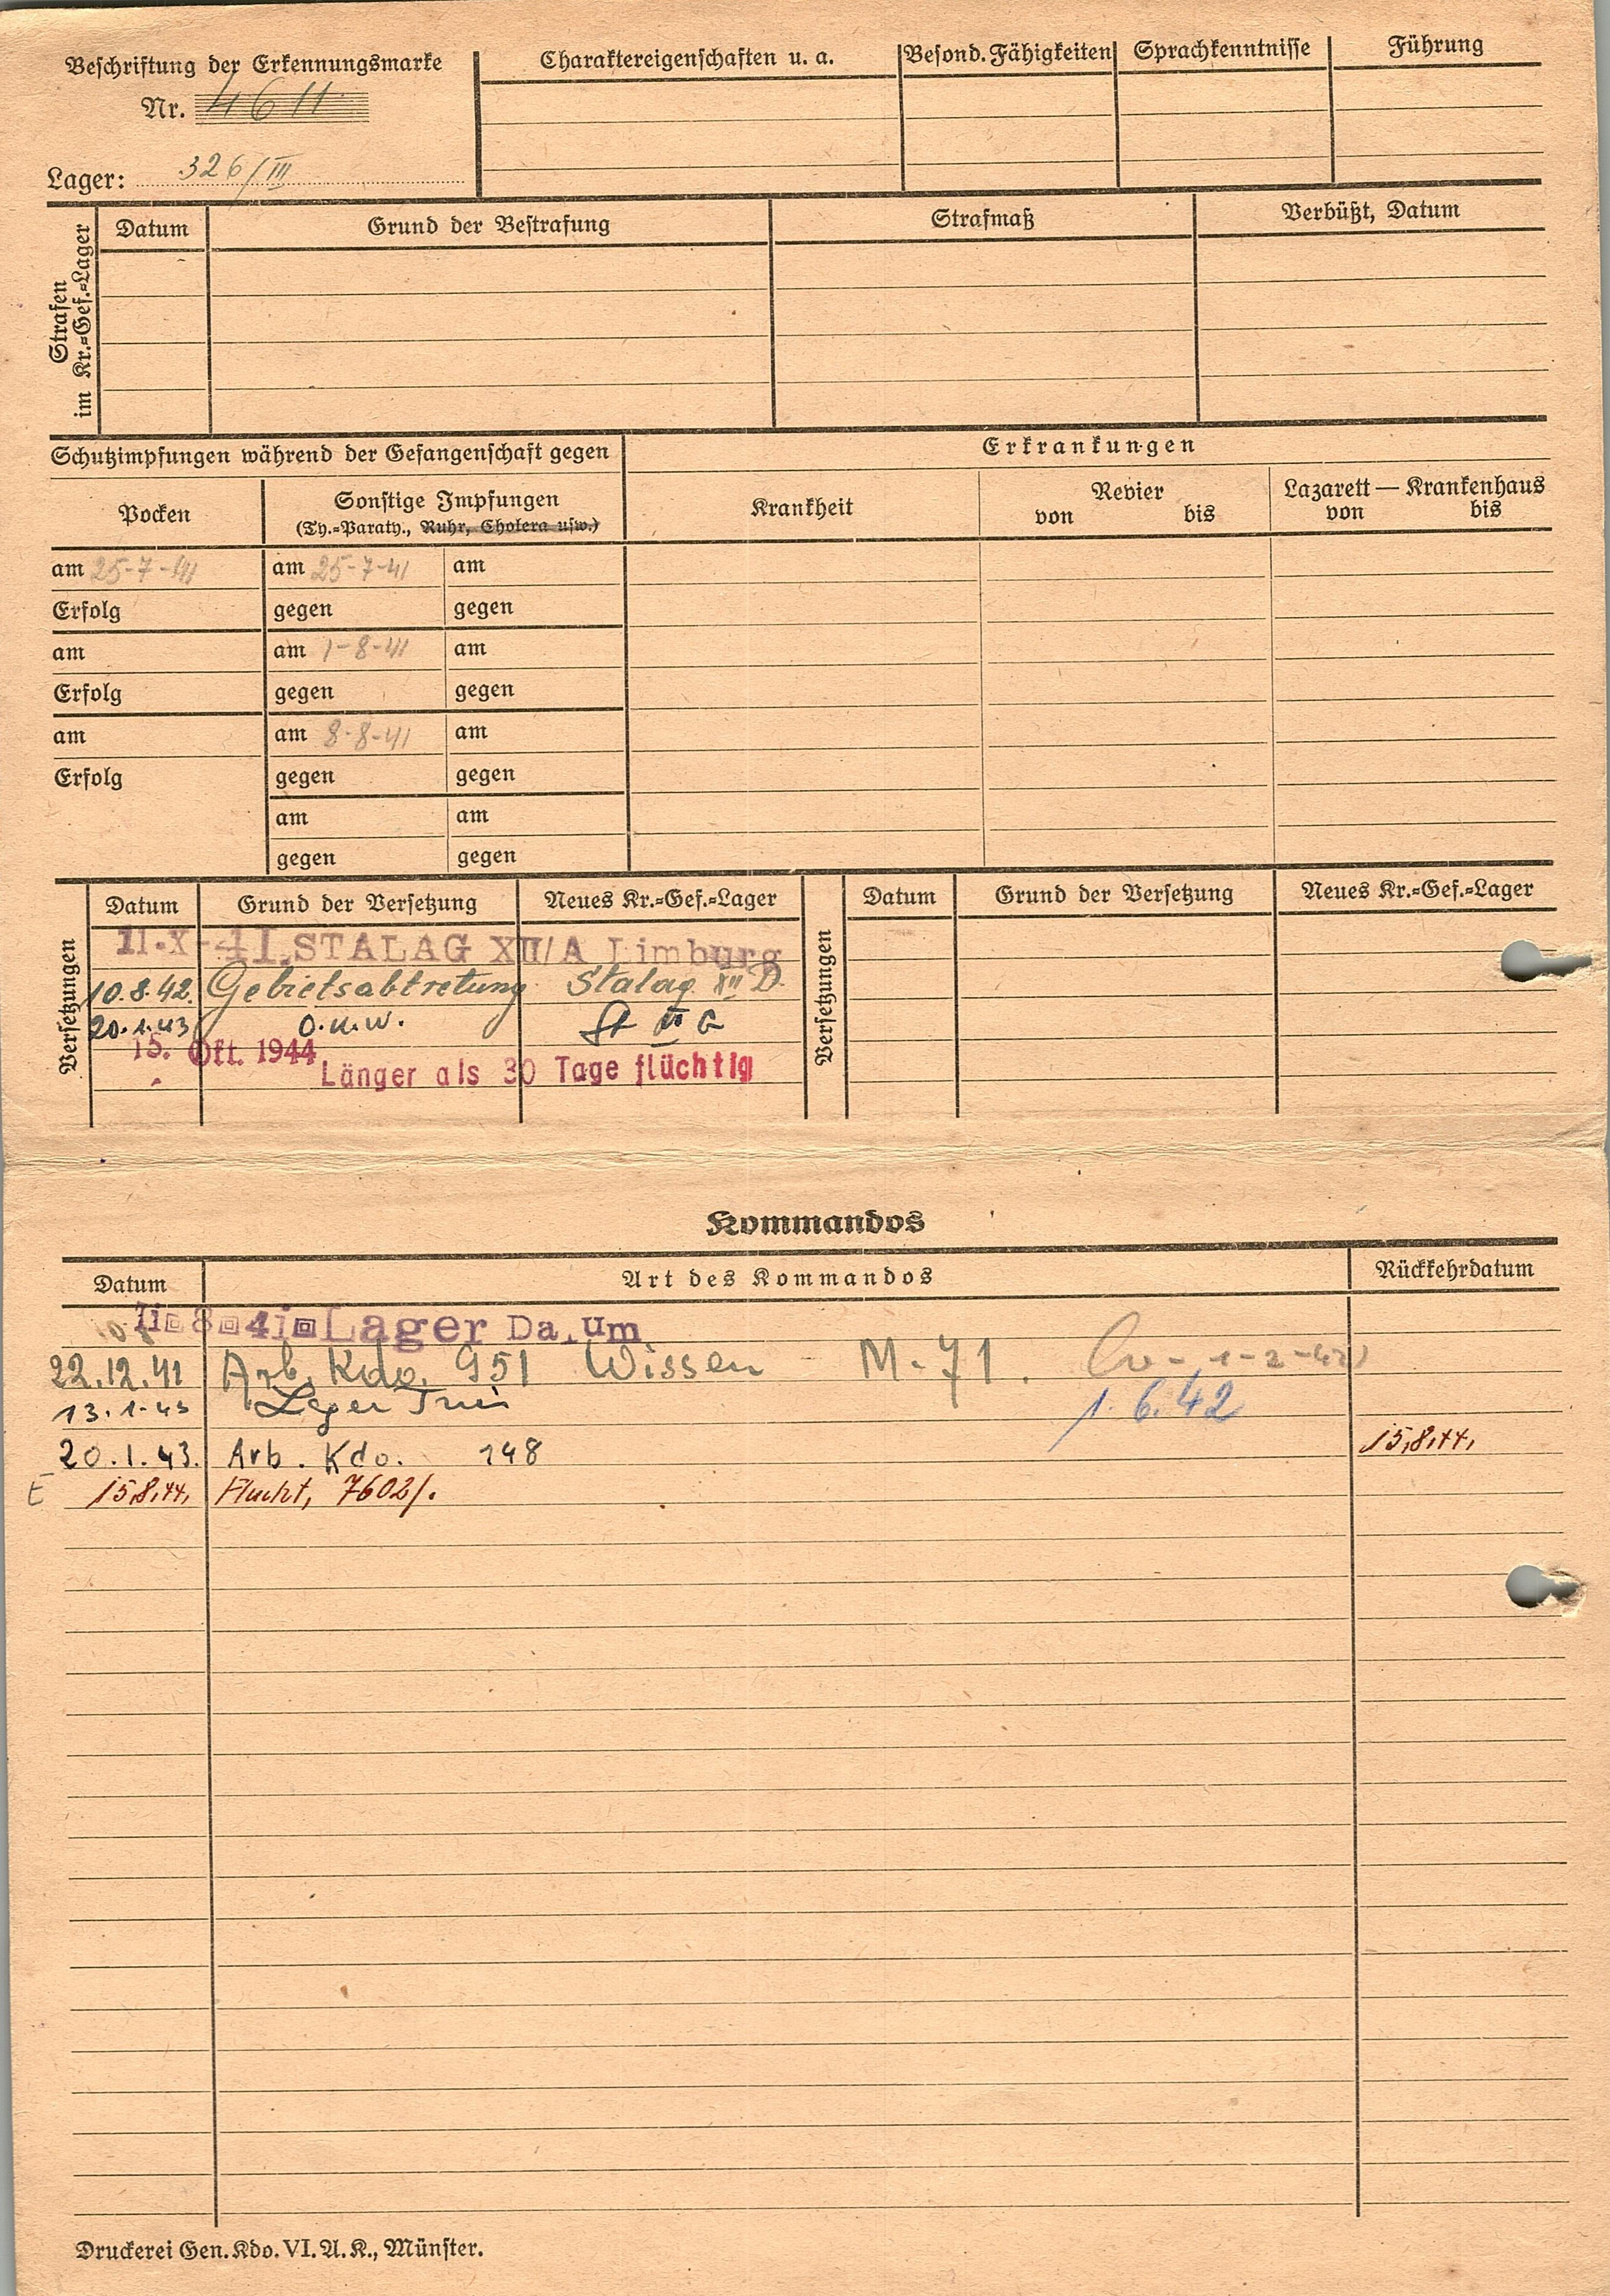 Beschriftung der Erkennungsmarke
Nr. 4611
Lager: 326/III
Charaktereigenschaften u. a.
Besond. Fähigkeiten
Sprachkenntnisse
Führung
Strafen
im Kr.=Gef.=Lager
Datum
Grund der Bestrafung
Strafmaß
Verbüßt, Datum
Schutzimpfungen während der Gefangenschaft gegen
Erkrankungen
Pocken
Sonstige Impfungen
(Ty.=Paraty., Ruhr, Cholera usw.)
Krankheit
Revier
von bis
Lazarett — Krankenhaus
von bis
am 25-7-41 am 25-7-41 am
Erfolg gegen gegen
am am 1-8-41 am
Erfolg gegen gegen
am am 8-8-41 am
Erfolg gegen gegen
am am
gegen gegen
Versetzungen
Datum Grund der Versetzung Neues Kr.=Gef.=Lager
11.X-41.STALAG XII/A Limburg
10.8.42. Gebietsabtretung Stalag XII D.
20.1.43 O.K.W. St
15. Okt. 1944
Länger als 30 Tage flüchtig
Versetzungen
Datum Grund der Versetzung Neues Kr.=Gef.=Lager
Kommandos
Datum Art des Kommandos Rückkehrdatum
Lager
22.12.41 Arb. Kdo. 951 Wissen M-71. 1-2-42
13.1.43 Lager Trier 1.6.42
20.1.43. Arb. Kdo. 148 15.8.44.
E 15.8.44. Flucht, 7602/.
Druckerei Gen. Kdo. VI. A. K., Münster.